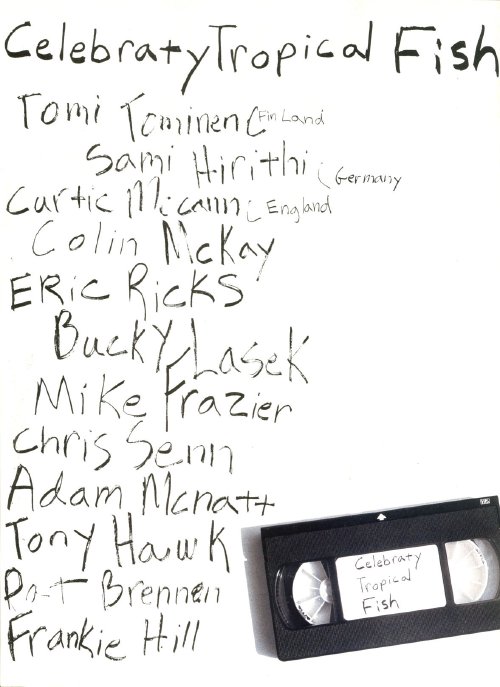 Celebraty Tropical Fish
Tomi Tominen (Finland
Sami Hirithi (Germany
Curtic Mccann (England
Colin McKay
ERic RicKS
Bucky Lasek
Mike Frazier
Chris Senn
Adam Mcnatt
Tony Hawk
Pat Brennen
Frankie Hill
Celebraty
Tropical
Fish